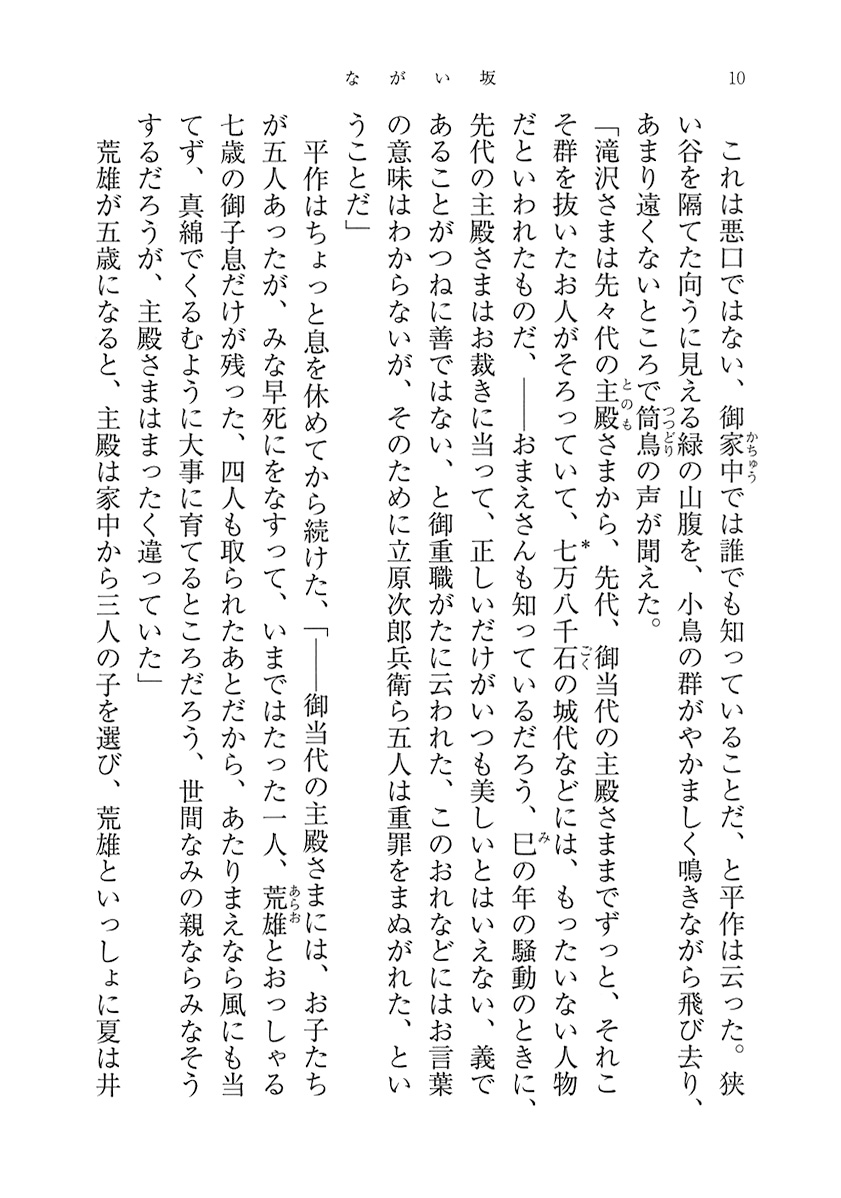 ながい坂
10
これは悪口ではない、御家中では誰でも知っていることだ、と平作は云った。狭
かちゅう
い谷を隔てた向うに見える緑の山腹を、小鳥の群がやかましく鳴きながら飛び去り、
あまり遠くないところで筒鳥の声が聞えた。
つつどり
「滝沢さまは先々代の主殿さまから、先代、御当代の主殿さままでずっと、それこ
とのも
そ群を抜いたお人がそろっていて、*七万八千石の城代などには、もったいない人物
ごく
だといわれたものだ、――おまえさんも知っているだろう、巳の年の騒動のときに、
み
先代の主殿さまはお裁きに当って、正しいだけがいつも美しいとはいえない、義で
あることがつねに善ではない、と御重職がたに云われた、このおれなどにはお言葉
の意味はわからないが、そのために立原次郎兵衛ら五人は重罪をまぬがれた、とい
うことだ」
平作はちょっと息を休めてから続けた、「――御当代の主殿さまには、お子たち
が五人あったが、みな早死にをなすって、いまではたった一人、荒雄とおっしゃる
あらお
七歳の御子息だけが残った、四人も取られたあとだから、あたりまえなら風にも当
てず、真綿でくるむように大事に育てるところだろう、世間なみの親ならみなそう
するだろうが、主殿さまはまったく違っていた」
荒雄が五歳になると、主殿は家中から三人の子を選び、荒雄といっしょに夏は井